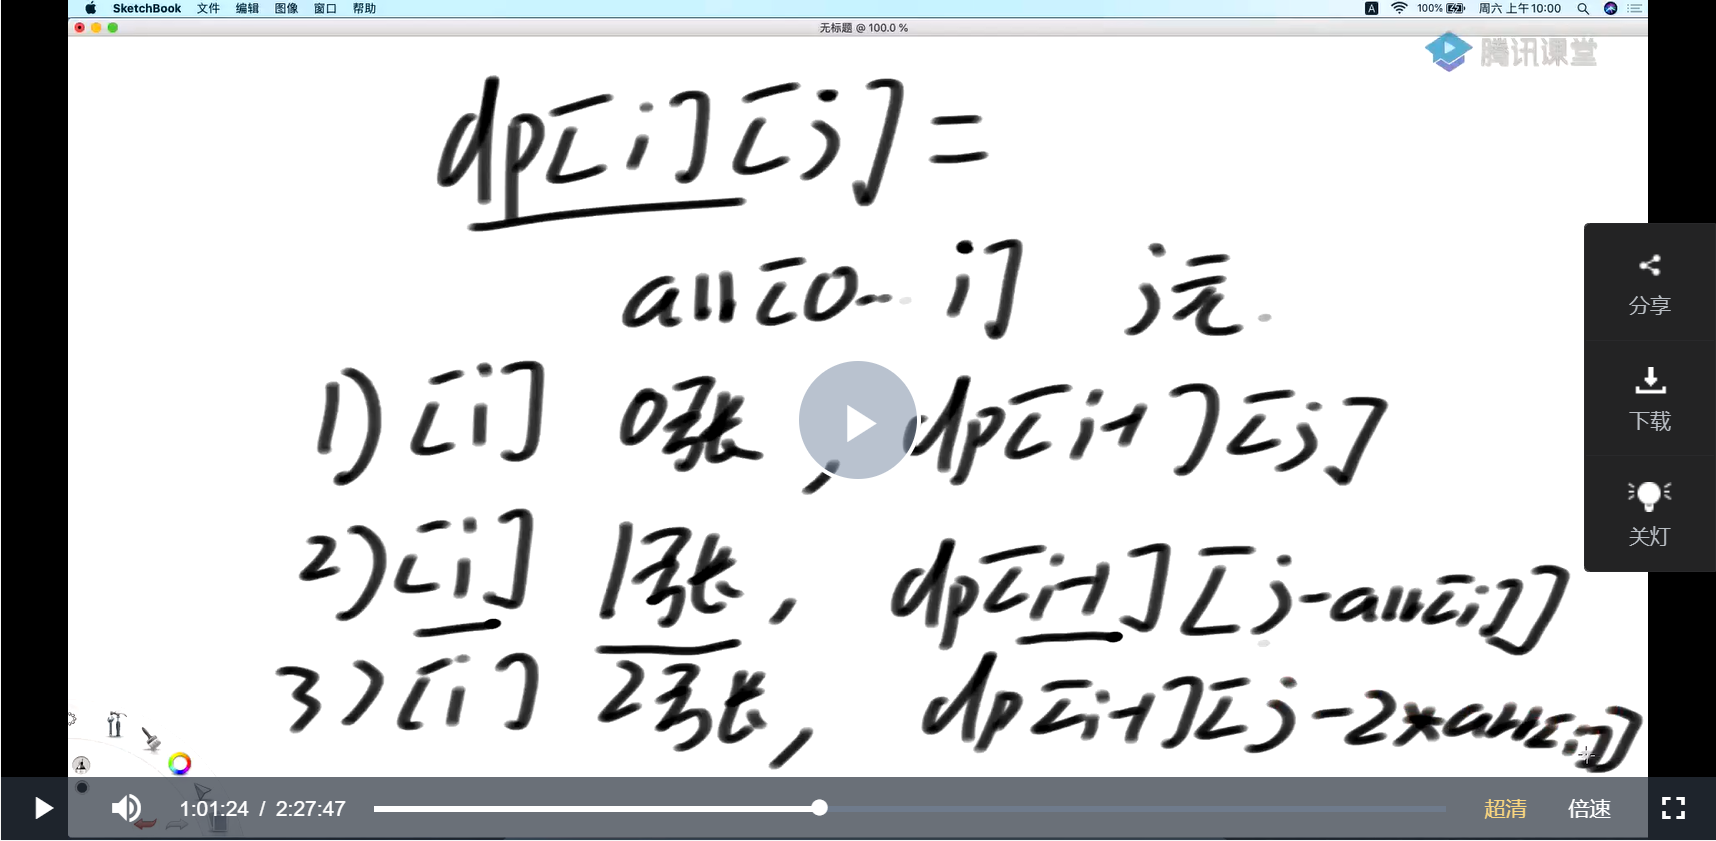 SketchBook 文件 编辑 图像 窗口 帮助
A 100% 周六 上午10:00
无标题 @ 100.0 %
腾讯课堂
dp[i][j]=
arr[0… i] j元.
1) [i] 0张, dp[i-1][j]
2) [i] 1张, dp[i-1][j-arr[i]]
3) [i] 2张, dp[i-1][j-2*arr[i]]
分享
下载
关灯
1:01:24 / 2:27:47
超清 倍速